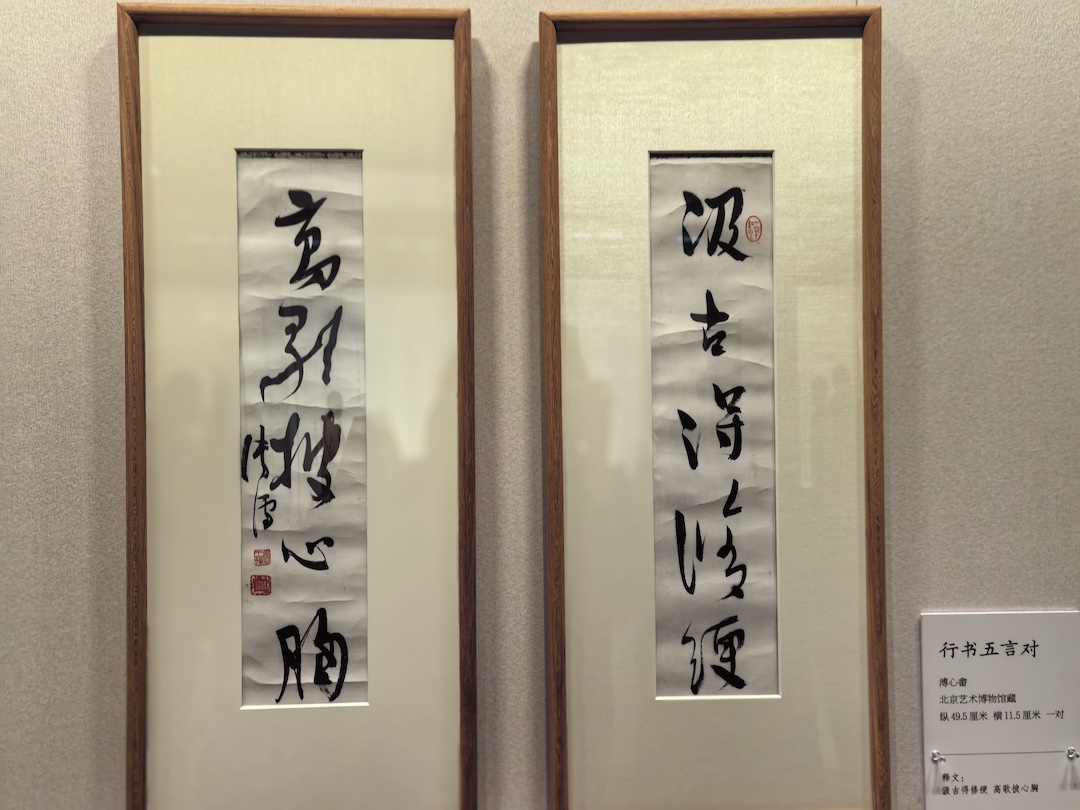 汲古得脩綆
高歌披心胸
溥儒
行书五言对
溥心畬
北京艺术博物馆藏
纵49.5厘米 横11.5厘米 一对
释文:
汲古得修绠 高歌披心胸